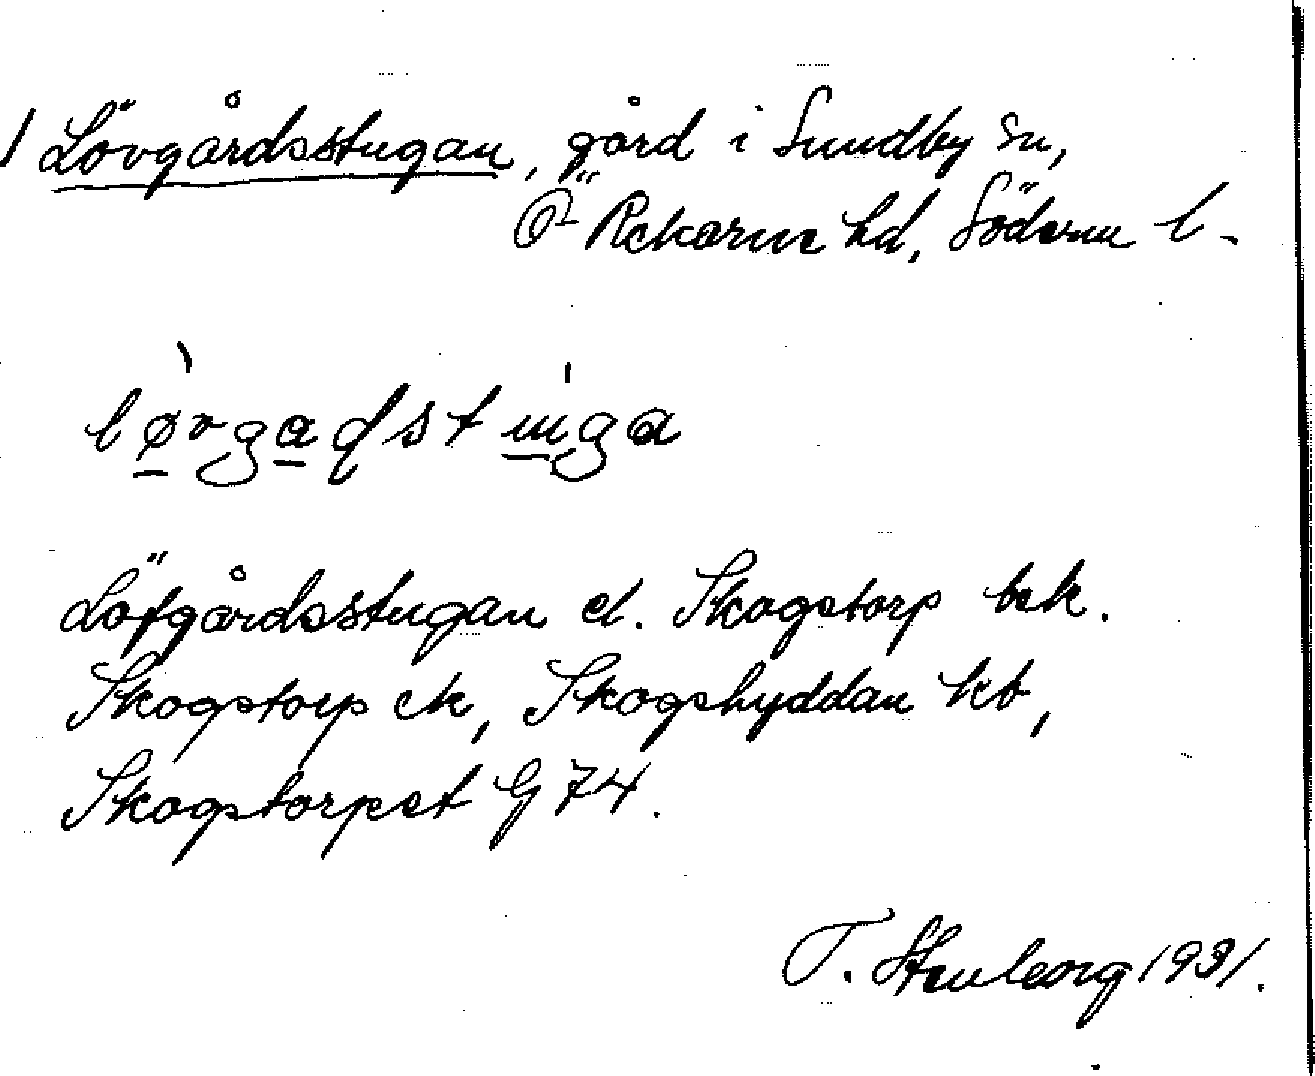 Lövgårdsstugan, gård i Sundby sn,
Ö Rekarne hd, Söderm l.
løvgadstuga
Löfgårdsstugan el. Skogstorp bek.
Skogstorp ek, Skogshyddan kb,
Skogstorpet G 74.
T. Stenborg 1931.